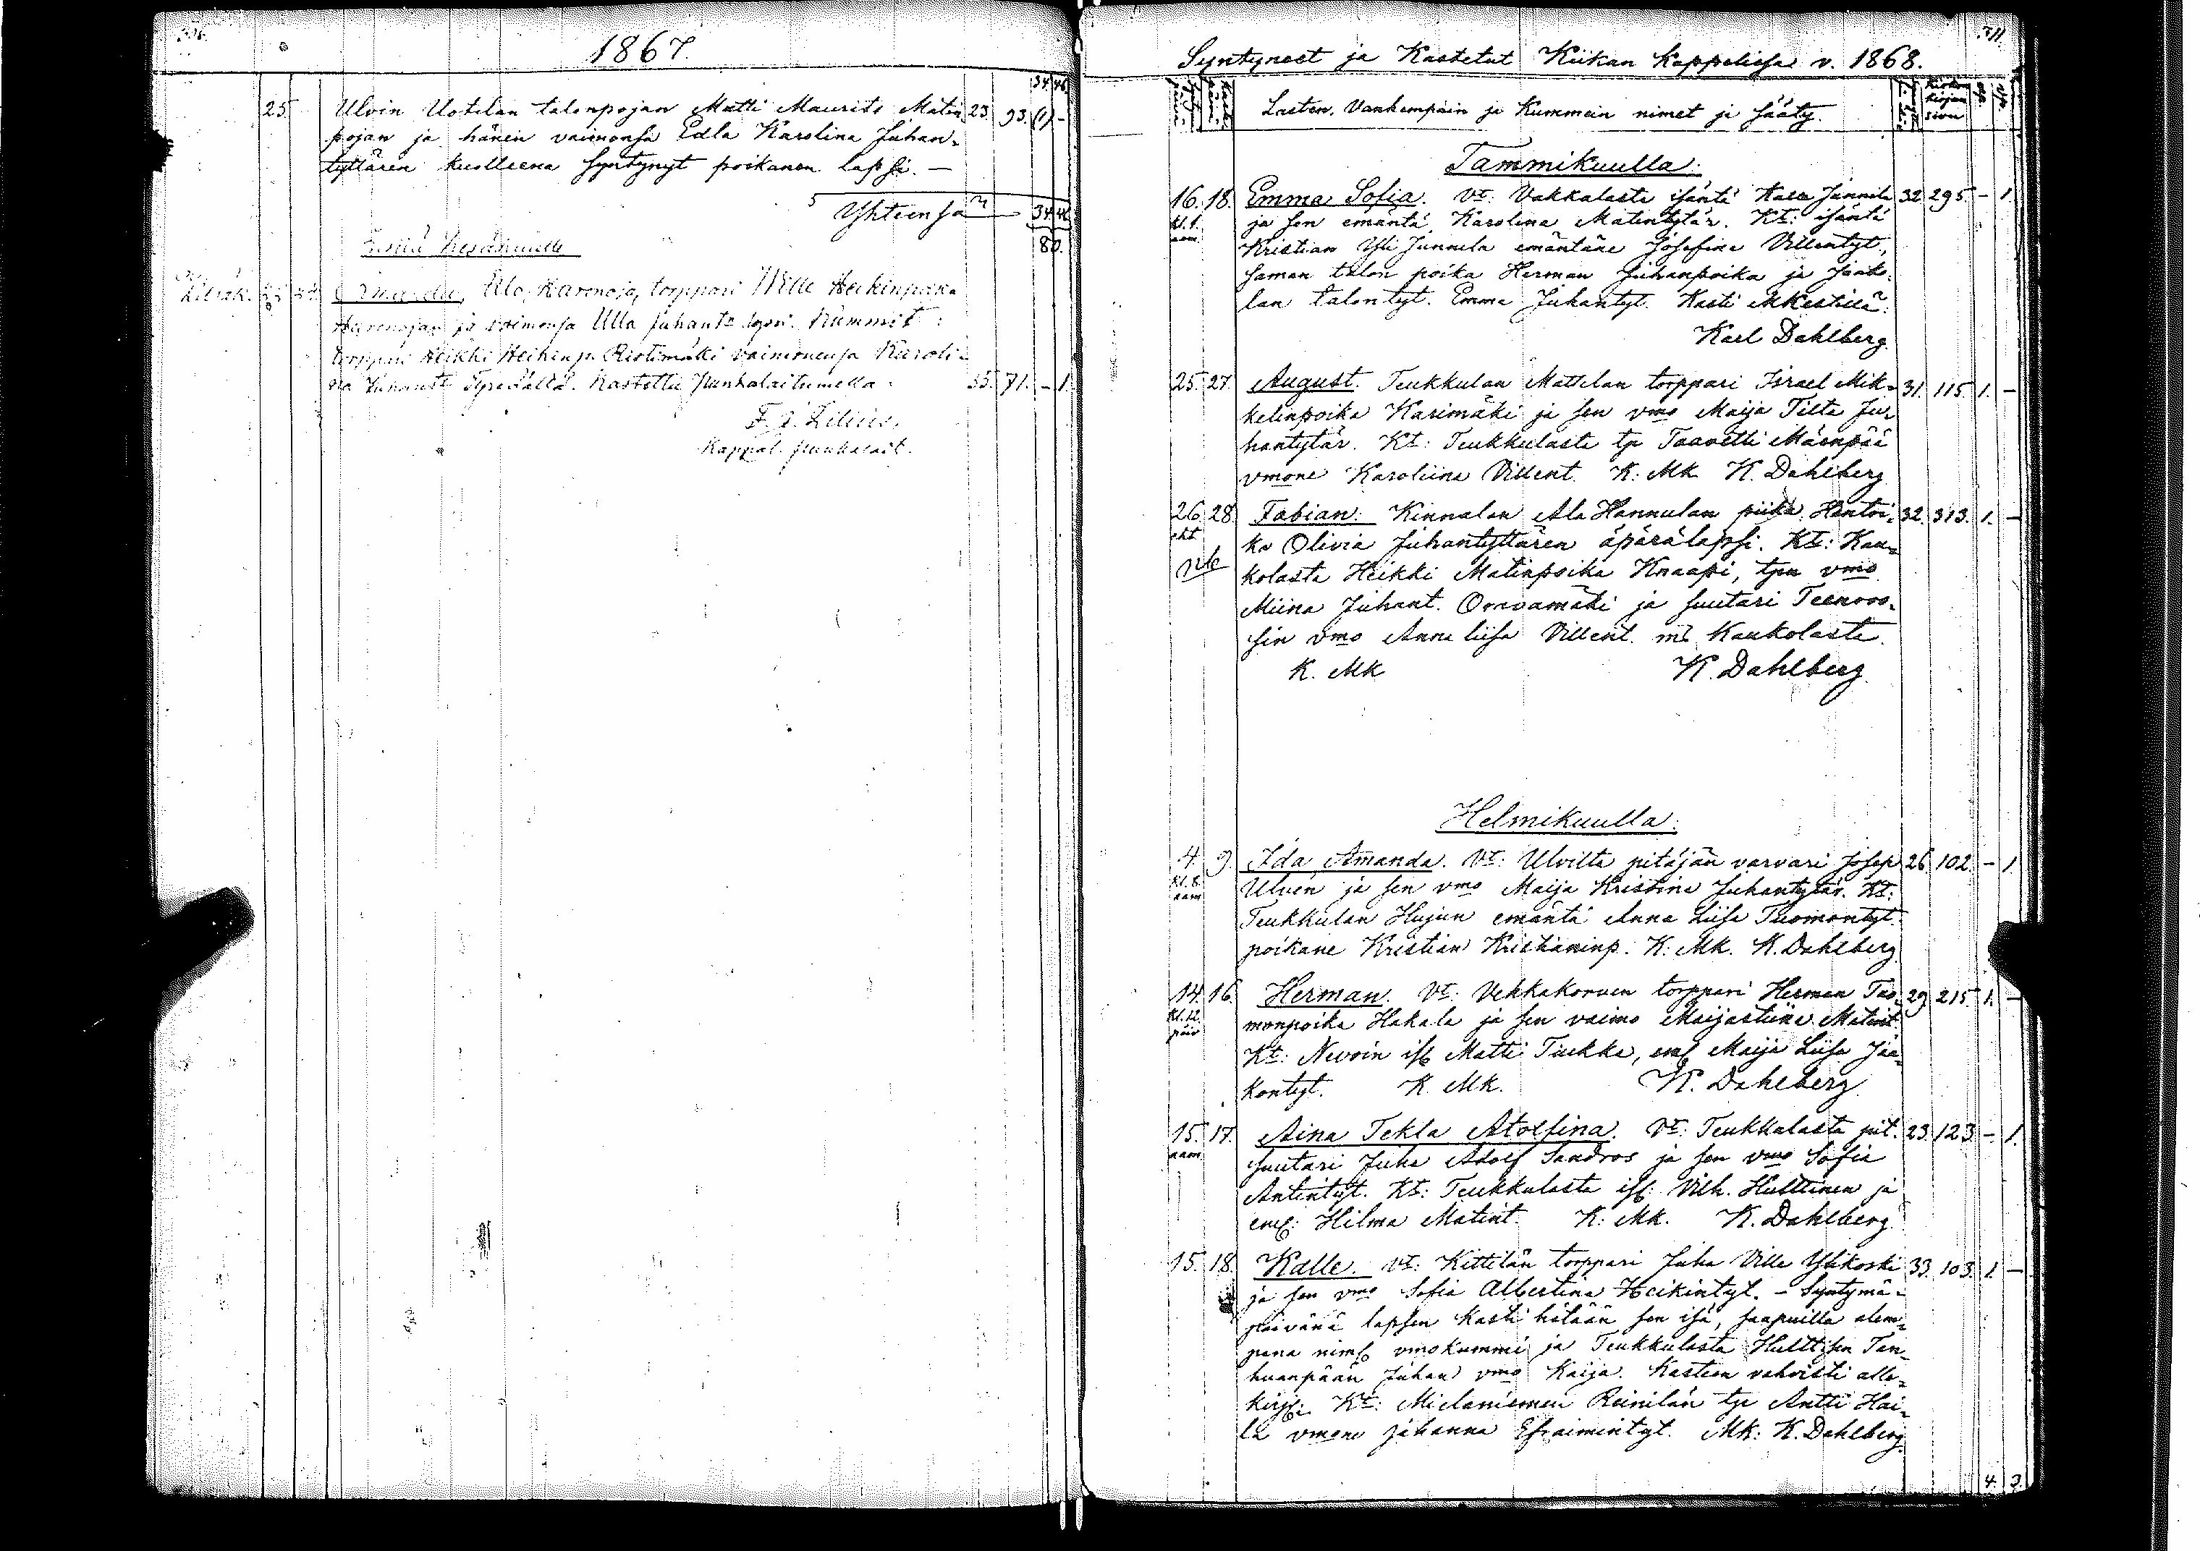 1867.
34 46
25. Ulvin Uotilan talonpojan Matti Maurits Matin 23. 93. (1) -
pojan ja hänen vaimonsa Edla Karolina Juhan-
tyttären kuolleena syntynyt poikanen lapsi. —
Yhteensä 34 46
80.
Ulo, Karenoja, torppari Wille Heikinpoika
ja vaimonsa Ulla Juhant: Kummit:
torppari Heikki Heikinp. Ristimäki vaimonensa Karoli-
na Juhant: Kastettu Punkalaitumella. 35. 71. - 1.
F. A. Zilius.
Kappal. Punkalait.
311
Syntyneet ja Kastetut Kiikan kappelissa v. 1868.
Lasten, Vanhempain ja Kummein nimet ja sääty. Kirkon kirjan sivu
Tammikuulla.
16. 18. Emma Sofia. Vt: Vakkalasta isäntä Kalle Junnila 32 295. - 1
kl. 1. ja sen emäntä Karolina Matintytär. Kt: isäntä
aam. Kristian Yli Junnila emäntäne Josefina Villentyt.,
saman talon poika Herman Juhanpoika ja Jaak-
lan talontyt. Emma Juhantyt. Kasti
Karl Dahlberg.
25. 27. August. Teukkulan Mattilan torppari Israel Mik- 31. 115. 1. -
kelinpoika Karimäki ja sen vmo Maija Tilta Ju-
hantytär. Kt: Teukkulasta tp Taavetti Mäenpää
vmone Karoliina Villent. K: Mk K. Dahlberg
26. 28. Fabian. Kinnalan Ala Hannulan piika Hentri- 32. 313. 1. -
eht ka Olivia Juhantyttären äpärälapsi. Kt: Kau-
kolasta Heikki Matinpoika Knaapi, tpn vmo
Miina Juhant. Oravamäki ja suutari Teenroo-
sin vmo Anna Liisa Villent. ml Kaukolasta.
K. Mk K. Dahlberg
Helmikuulla.
4. 9. Ida Amanda. Vt: Ulvilta pitäjän varvari Josep 26 102. - 1
kl. 8. Ulvén ja sen vmo Maija Kristina Juhantytär. Kt:
aam Teukkulan Hujun emäntä Anna Liisa Tuomontyt.
poikane Kristian Kristianinp. K: Mk. K. Dahlberg
14. 16. Herman. Vt: Vehkakorven torppari Herman Tuo- 29 215. 1. -
kl. 12. monpoika Hakala ja sen vaimo Maijastiina Matint
päiv Kt: Nevoin is: Matti Tiukka, em: Maija Liisa Jaa-
kontyt. K. Mk. K. Dahlberg
15. 17. Aina Tekla Atolfina. Vt: Teukkulasta pit. 23. 123. - 1.
aam. suutari Juha Adolf Sandros ja sen vmo Sofia
Antintyt. Kt: Teukkulasta is: Vilh. Hulttinen ja
em: Hilma Matint. K: Mk. K. Dahlberg
15. 18. Kalle. Vt: Kittilän torppari Juha Ville Ylikoski 33. 103. 1. -
ja sen vmo Sofia Albertina Heikintyt. - Syntymä-
päivänä lapsen kasti hätään sen isä, saapuilla alem-
pana nims: vmokummi ja Teukkulasta Hulttisen Tan-
huanpään Juhan vmo Kaija. Kasteen vahvisti alle-
kirj: Kt: Mielaniemen Reinilän tp Antti Hai-
la vmone Johanna Efraimintyt. Mk: K. Dahlberg.
4. 3.